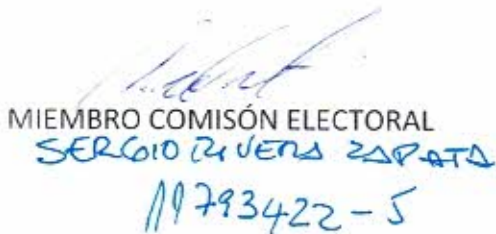 MIEMBRO COMISÓN ELECTORAL
SERGIO RIVERA ZAPATA
11793422-5